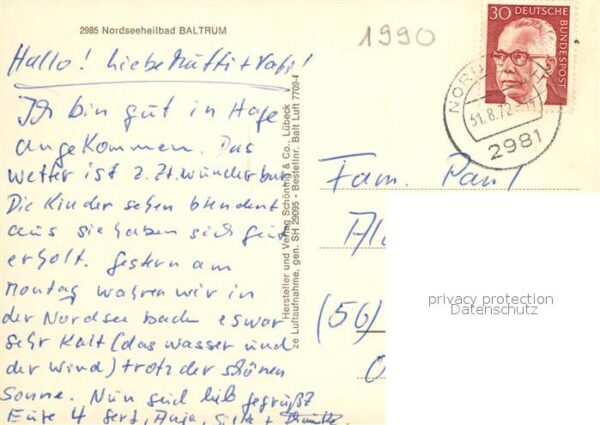 2985 Nordseeheilbad BALTRUM
1990
30 DEUTSCHE BUNDESPOST
31.8.72
2981
Hallo! Liebe Mutti + Vati!
Ich bin gut in Hage
angekommen. Das
wetter ist z.Zt. wunderbar
Die Kinder sehen blendent
aus sie haben sich gut
erholt. Gestern am
Montag wahren wir in
der Nordsee baden es war
sehr Kalt (das wasser und
der Wind) trotz der schönen
Sonne. Nun seid lieb gegrüßt
Eure 4 Gert, Anja, Silke +
Hersteller und Verlag Schöning & Co., Lübeck
ze Luftaufnahme, gen. SH 29095 - Bestellnr. Balt Luft 7709-4
Fam. Paul
(56)
privacy protection
Datenschutz